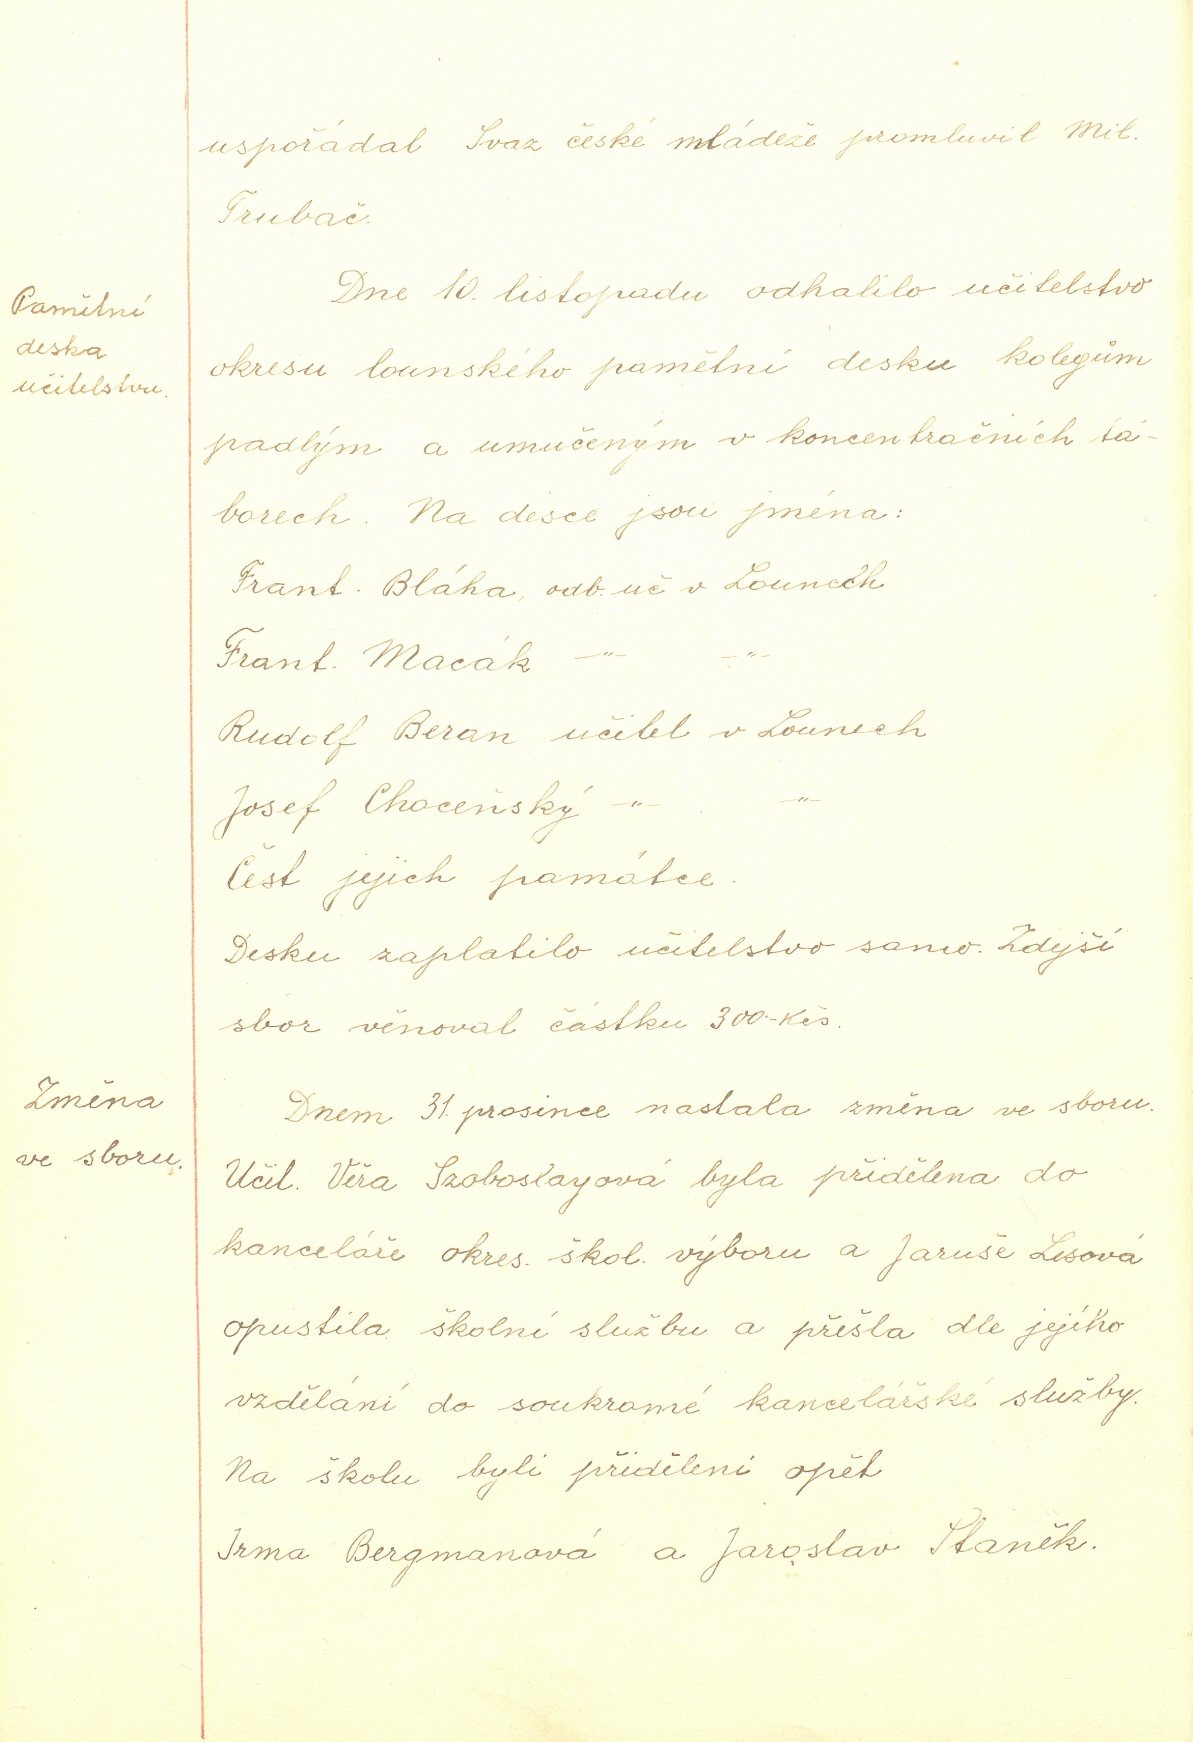 uspořádal Svaz české mládeže promluvil Mil.
Trubač.
Pamětní
deska
učitelstvu.
Dne 10. listopadu odhalilo učitelstvo
okresu lounského pamětní desku kolegům
padlým a umučeným v koncentračních tá-
borech. Na desce jsou jména:
Frant. Bláha, odb. uč v Lounech
Frant. Macák –"– –"–
Rudolf Beran učitel v Lounech
Josef Choceňský –"– –"–
Čest jejich památce.
Desku zaplatilo učitelstvo samo. Zdejší
sbor věnoval částku 300.-Kčs.
Změna
ve sboru.
Dnem 31. prosince nastala změna ve sboru.
Učit. Věra Szoboslayová byla přidělena do
kanceláře okres. škol. výboru a Jaruše Lesová
opustila školní službu a přešla dle jejího
vzdělání do soukromé kancelářské služby.
Na školu byli přiděleni opět
Irma Bergmanová a Jaroslav Staněk.